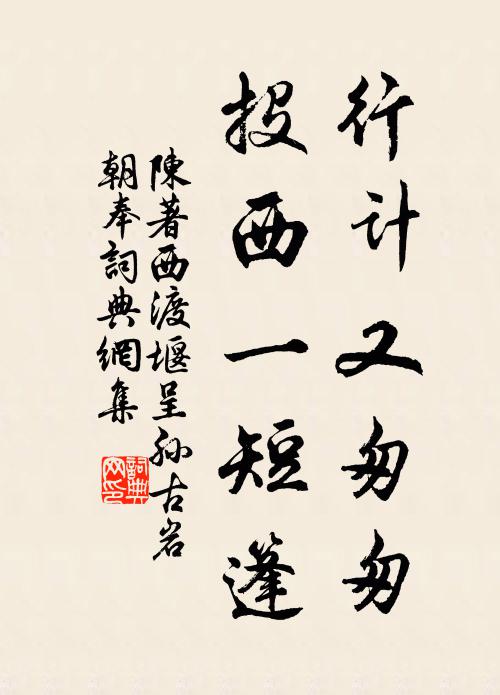 行计又匆匆
投西一短篷
陳著西渡堰呈孙古岩
朝奉詞典網集
詞典网